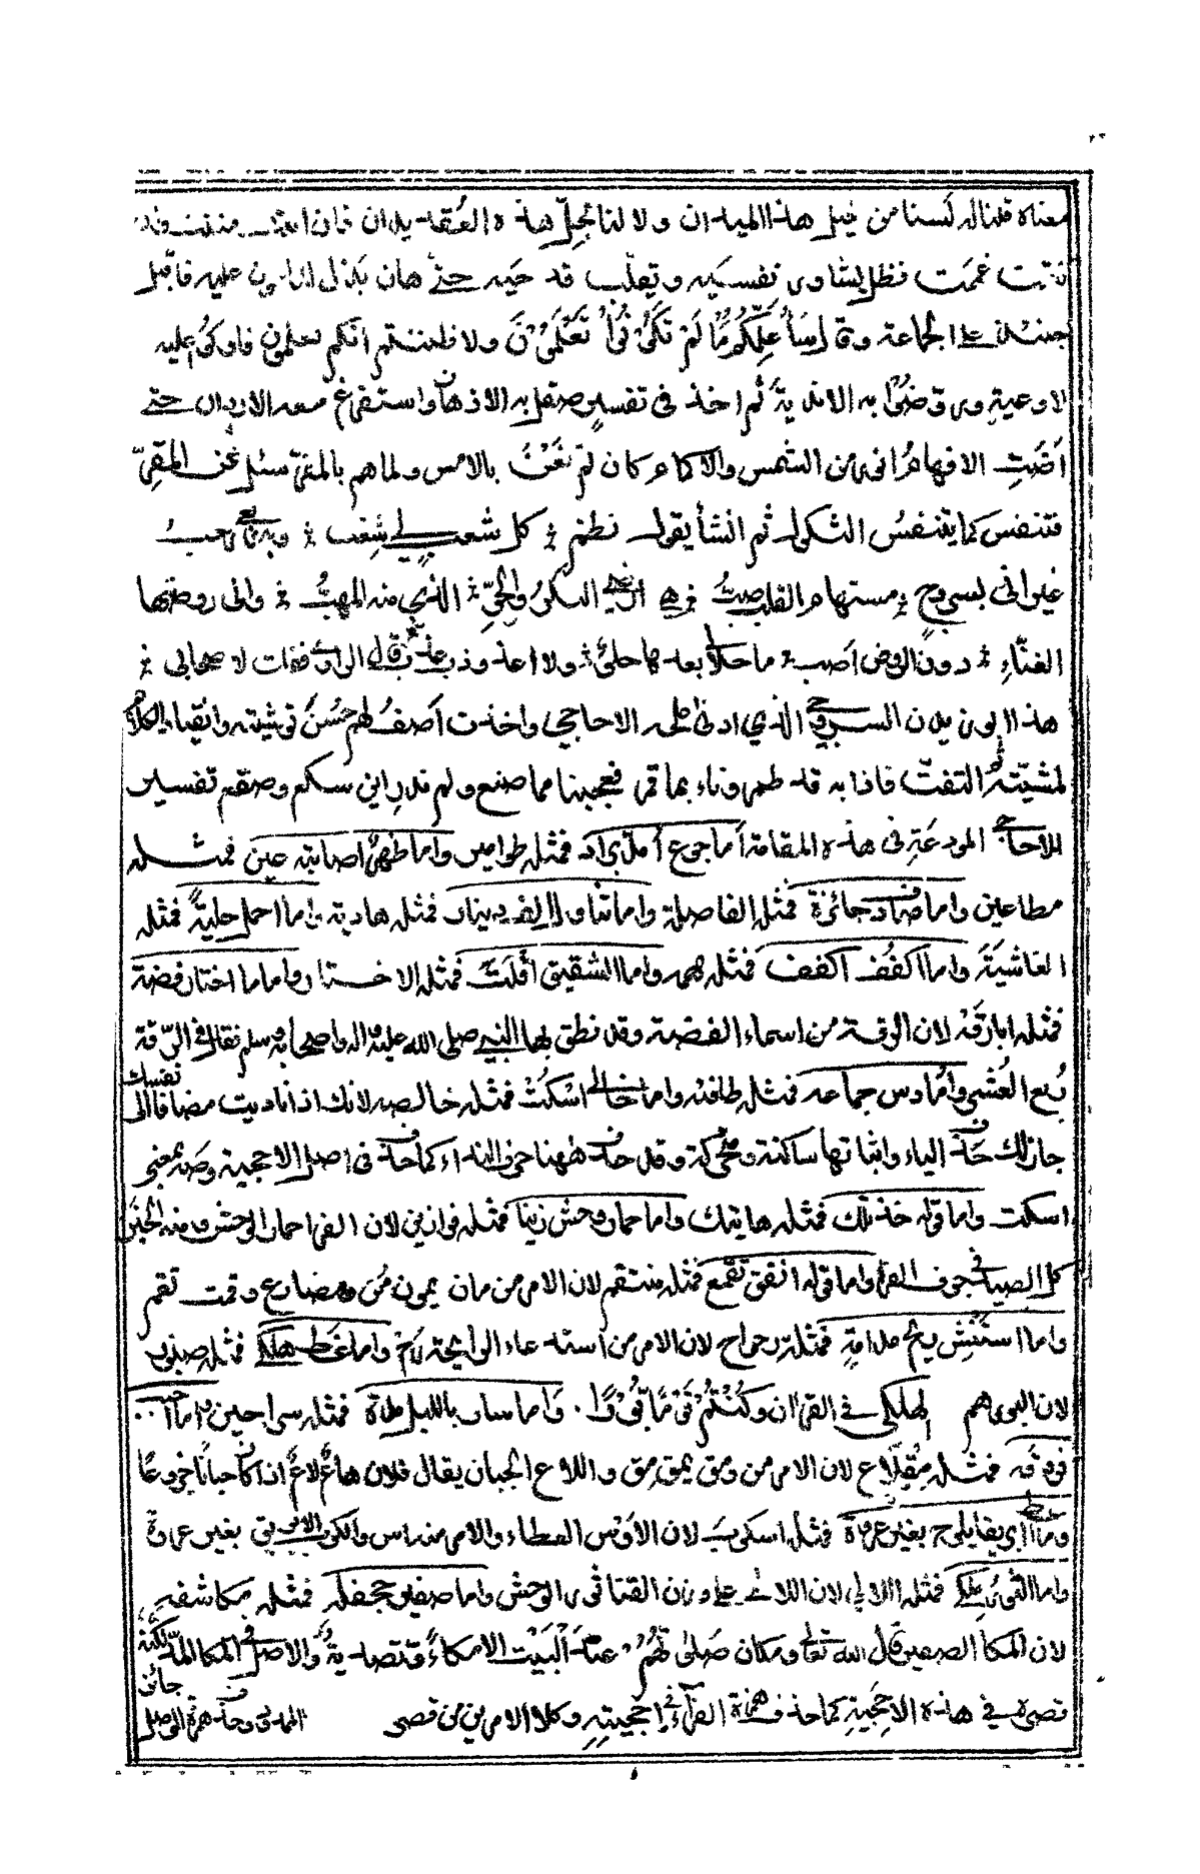 معناه فلنا له لسنا من خيل هذا الميدان ولا لنا بحل هذه العقد يدان فان ابنت مننت وان
كتمت غممت فظل يشاور نفسيه ويقلب قدحيه حتى هان بذل الماعون عليه فاقبل
حينئذ على الجماعة وقال سَأُعَلِّمُكُم مَّا لَمْ تَكُونُوا تَعْلَمُونَ ولا ظننتم انكم تعلمون فاوكوا عليه
الاوعية وروضوا به الاندية ثم اخذ في تفسير صقل به الاذهان واستفرغ معه الاردان حتى
اضت الافهام انور من الشمس والاكمام كان لم تغن بالامس ولما هم بالمفر سئل عن المقر
فتنفس كما يتنفس الثكول ثم انشأ يقول نظم كل شعب لي شعب وبه ربعي رحب
غير اني بسروج مستهام القلب صب هي ارضي البكر والجو الذي منه المهب والى روضتها
الغناء دون الروض اصب ما حلا لي بعدها حلو ولا اعذوذب عذب قال الراوي فقلت لاصحابي
هذا ابو زيد السروجي الذي ادنى ملحه الاحاجي واخذت اصف لهم حسن توشيته وانقياد الكلام
لمشيته ثم التفت فاذا به قد طمر وناء بما قمر فعجبنا مما صنع ولم ندر اين سكع وصقع تفسير
الاحاجي المودعة في هذه المقامة اما جوع امد بزاد فمثله طوامير واما ظهر اصابته عين فمثله
مطاعين واما صادف جائزة فمثله الفاصلة واما تناول الف دينار فمثله هادية واما اهمل حلية فمثله
الغاشية واما اكفف اكفف فمثله مهمه واما الشقيق افلت فمثله الاخطار واما ما اختار فضة
فمثله ابارقة لان الرقة من اسماء الفضة وقد نطق بها النبي صلى الله عليه واله واصحابه وسلم فقال في الرقة
ربع العشر واما دس جماعة فمثله طافئة واما خالي اسكت فمثله خالصه لانك اذا ناديت مضافا الى نفسك
جاز لك حذف الياء واثباتها ساكنة ومتحركة وقد حذف ههنا حرف النداء كما حذف في اصل الاحجية وصه بمعنى
اسكت واما قوله خذ تلك فمثله هاتيك واما حمار وحش زينا فمثله فرازين لان الفرا حمار الوحش ومنه الخبر
كل الصيد في جوف الفرا واما قوله انفق تقمع فمثله منتقم لان الامر من مان يمون من ومضارع وقمت تقم
واما استنش ريح مدامة فمثله رحراح لان الامر من استدعاء الرائحة رح واما غط هلكى فمثله صنبور
لان البور هم الهلكى في القران وَكُنتُمْ قَوْمًا بُورًا . واما سار بالليل مدة فمثله سراحين واما احبب
فروقه فمثله مقلاع لان الامر من ومق يمق مق واللاع الجبان يقال فلان هاع لاع اذا كان جبانا جزوعا
واما اعط ابريقا يلوح بغير عروة فمثله اسكوب لان الاوس العطاء والامر منه اس والكوب الابريق بغير عروة
واما الثور ملكي فمثله اللآلي لان اللائ على وزن القنا ثور الوحش واما صفير جحفلة فمثله مكاشفة
لان المكا الصفير قال الله تعالى وما كان صَلاتُهُمْ عِندَ الْبَيْتِ إِلَّا مُكَاءً وَتَصْدِيَةً والاصل في المكا المد لكنه
قصره في هذه الاحجية كما حذف همزة الفراء في احجيته وكلا الامرين من قصر الممدود وحذف همزة المهموز جائز